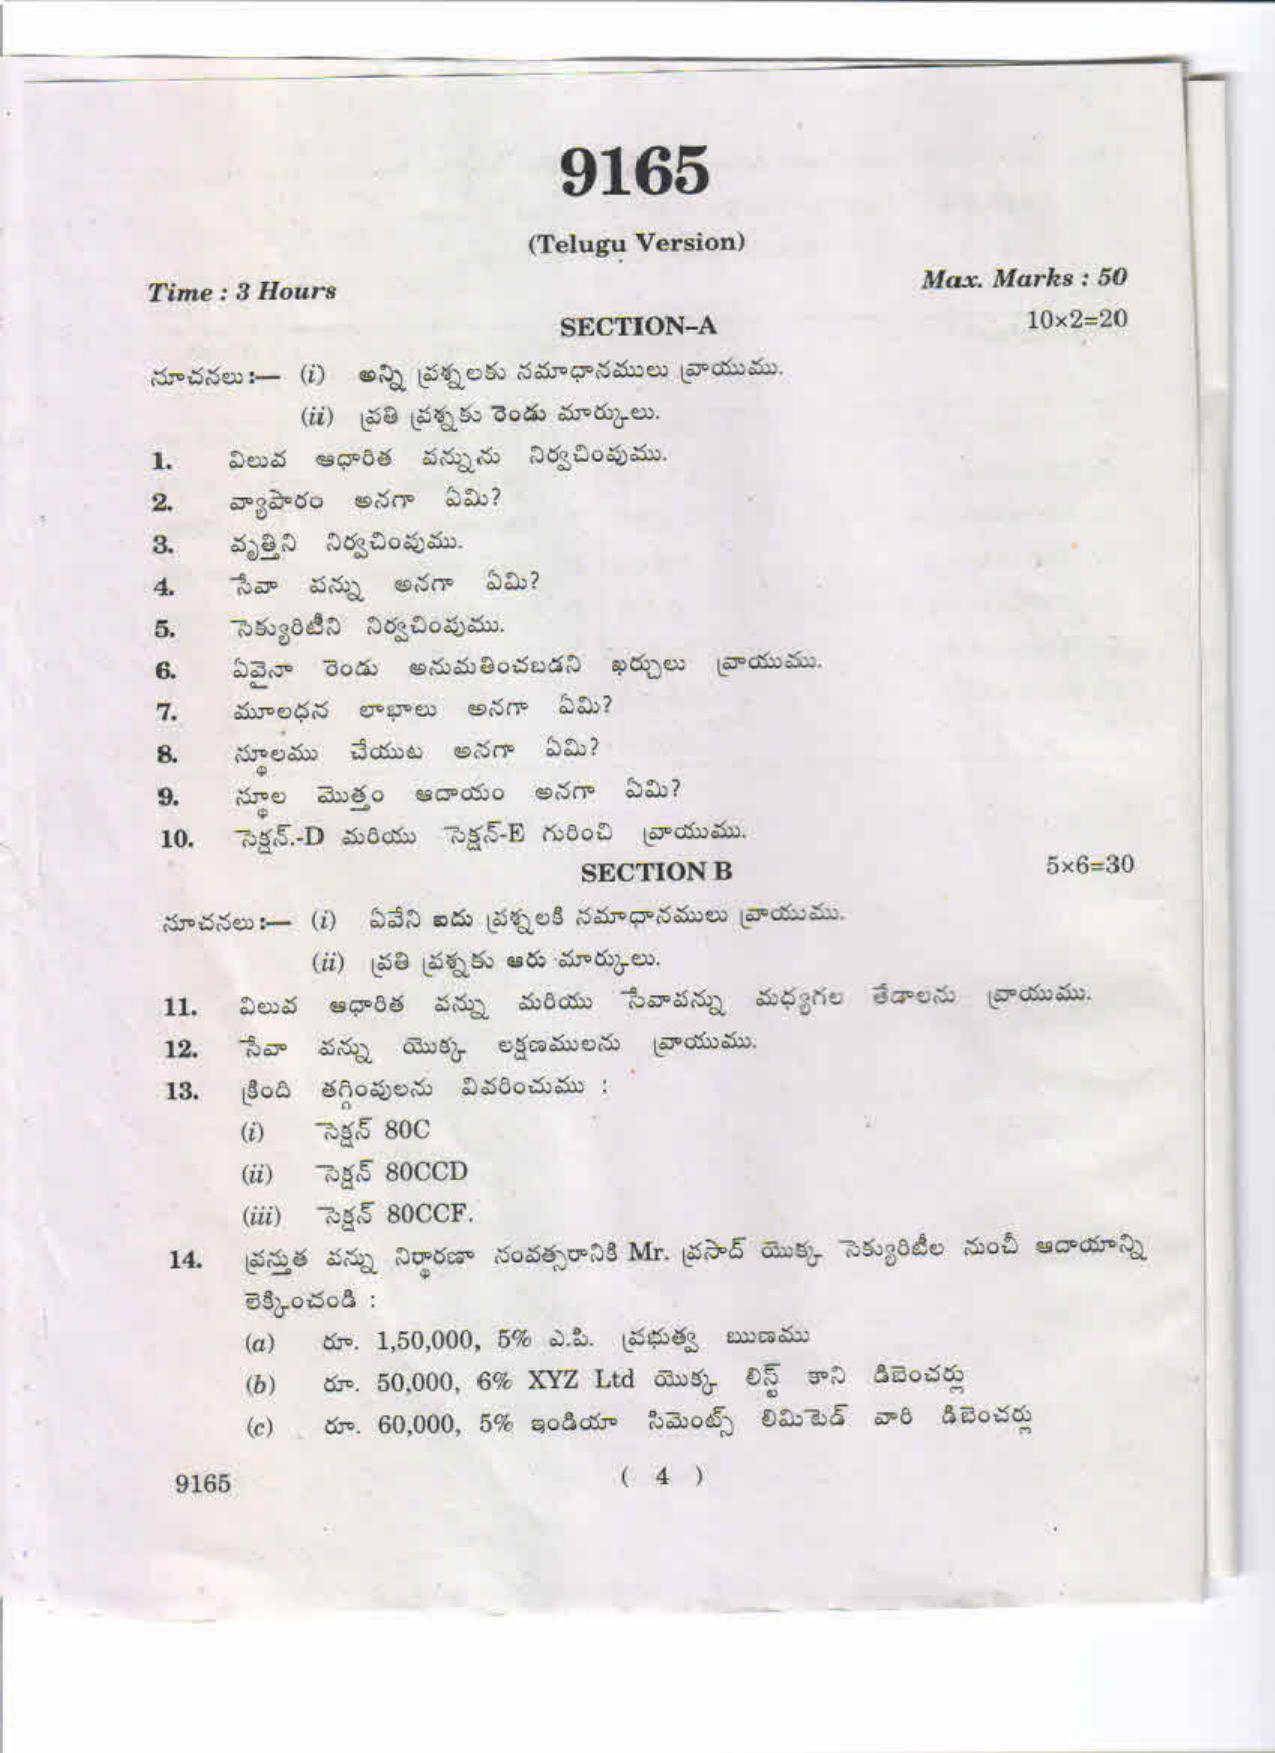 9165
(Telugu Version)
Time : 3 Hours
Max. Marks : 50
SECTION–A
10×2=20
సూచనలు :— (i) అన్ని ప్రశ్నలకు సమాధానములు వ్రాయుము.
(ii) ప్రతి ప్రశ్నకు రెండు మార్కులు.
1. విలువ ఆధారిత పన్నును నిర్వచింపుము.
2. వ్యాపారం అనగా ఏమి?
3. వృత్తిని నిర్వచింపుము.
4. సేవా పన్ను అనగా ఏమి?
5. సెక్యురిటీని నిర్వచింపుము.
6. ఏవైనా రెండు అనుమతించబడని ఖర్చులు వ్రాయుము.
7. మూలధన లాభాలు అనగా ఏమి?
8. స్థూలము చేయుట అనగా ఏమి?
9. స్థూల మొత్తం ఆదాయం అనగా ఏమి?
10. సెక్షన్.-D మరియు సెక్షన్-E గురించి వ్రాయుము.
SECTION B
5×6=30
సూచనలు :— (i) ఏవేని ఐదు ప్రశ్నలకి సమాధానములు వ్రాయుము.
(ii) ప్రతి ప్రశ్నకు ఆరు మార్కులు.
11. విలువ ఆధారిత పన్ను మరియు సేవాపన్ను మధ్యగల తేడాలను వ్రాయుము.
12. సేవా పన్ను యొక్క లక్షణములను వ్రాయుము.
13. క్రింది తగ్గింపులను వివరించుము :
(i) సెక్షన్ 80C
(ii) సెక్షన్ 80CCD
(iii) సెక్షన్ 80CCF.
14. ప్రస్తుత పన్ను నిర్ధారణా సంవత్సరానికి Mr. ప్రసాద్ యొక్క సెక్యురిటీల నుంచీ ఆదాయాన్ని
లెక్కించండి :
(a) రూ. 1,50,000, 5% ఎ.పి. ప్రభుత్వ ఋణము
(b) రూ. 50,000, 6% XYZ Ltd యొక్క లిస్ట్ కాని డిబెంచర్లు
(c) రూ. 60,000, 5% ఇండియా సిమెంట్స్ లిమిటెడ్ వారి డిబెంచర్లు
9165
( 4 )